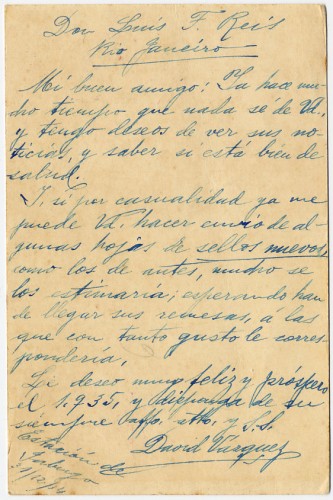 Don Luis F. Reis
Rio Janeiro
Mi buen amigo: Ya hace mu-
cho tiempo que nada sé de Vd.,
y tengo deseos de ver sus no-
ticias, y saber si está bien de
salud.
Y, si por casualidad ya me
puede Vd. hacer envio de al-
gunas hojas de sellos nuevos,
como los de antes, mucho se
los estimaría; esperando han
de llegar sus remesas, á las
que con tanto gusto le corres-
pondería,
Le deseo muy feliz y próspero
el 1.935, y disponga de su
siempre affo. atto. y S.S.
David Vazquez
Estación
de